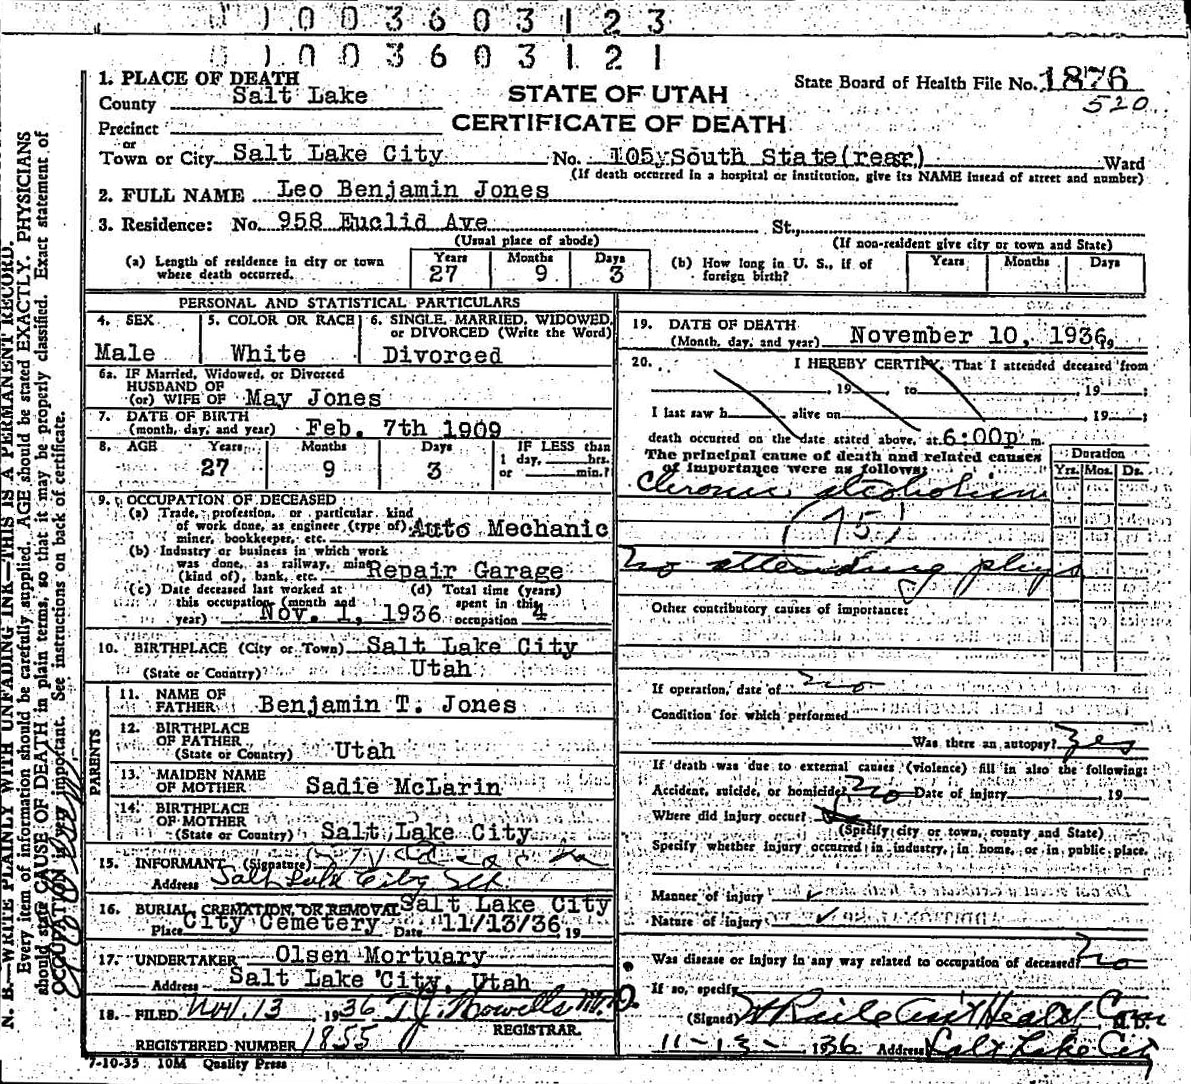 1003603123
1003603121
1. PLACE OF DEATH
County Salt Lake
Precinct
or
Town or City Salt Lake City No. 105 South State (rear) Ward
(If death occurred in a hospital or institution, give its NAME instead of street and number)
STATE OF UTAH
CERTIFICATE OF DEATH
State Board of Health File No. 1876
520
2. FULL NAME Leo Benjamin Jones
3. Residence: No. 958 Euclid Ave St.,
(Usual place of abode) (If non-resident give city or town and State)
(a) Length of residence in city or town where death occurred. Years 27 Months 9 Days 3
(b) How long in U. S., if of foreign birth? Years Months Days
PERSONAL AND STATISTICAL PARTICULARS
4. SEX Male
5. COLOR OR RACE White
6. SINGLE, MARRIED, WIDOWED, or DIVORCED (Write the Word) Divorced
6a. IF Married, Widowed, or Divorced
HUSBAND OF
(or) WIFE OF May Jones
7. DATE OF BIRTH
(month, day, and year) Feb. 7th 1909
8. AGE Years 27 Months 9 Days 3 IF LESS than
1 day, hrs.
or min.?
9. OCCUPATION OF DECEASED
(a) Trade, profession, or particular kind
of work done, as engineer (type of), Auto Mechanic
miner, bookkeeper, etc.
(b) Industry or business in which work
was done, as railway, mine Repair Garage
(kind of), bank, etc.
(c) Date deceased last worked at
this occupation (month and
year) Nov. 1, 1936
(d) Total time (years)
spent in this
occupation 4
10. BIRTHPLACE (City or Town) Salt Lake City
(State or Country) Utah
PARENTS
11. NAME OF
FATHER Benjamin T. Jones
12. BIRTHPLACE
OF FATHER
(State or Country) Utah
13. MAIDEN NAME
OF MOTHER Sadie McLarin
14. BIRTHPLACE
OF MOTHER
(State or Country) Salt Lake City
15. INFORMANT (Signature)
Address Salt Lake City Ut.
16. BURIAL, CREMATION, OR REMOVAL Salt Lake City
Place City Cemetery Date 11/13/36, 19
17. UNDERTAKER Olsen Mortuary
Address Salt Lake City, Utah
18. FILED Nov. 13, 1936 M.D.
REGISTRAR.
REGISTERED NUMBER 1855
7-10-35 10M Quality Press
19. DATE OF DEATH
(Month, day, and year) November 10, 1936, 19
20. I HEREBY CERTIFY, That I attended deceased from
, 19 to , 19 ;
I last saw h alive on , 19 ;
death occurred on the date stated above, at 6:00p m.
The principal cause of death and related causes
of importance were as follows:
Duration
Yrs. Mos. Ds.
Chronic alcoholism
(75)
no attending phys
Other contributory causes of importance:
If operation, date of no
Condition for which performed
Was there an autopsy? Yes
If death was due to external causes (violence) fill in also the following:
Accident, suicide, or homicide? no Date of injury , 19
Where did injury occur?
(Specify city or town, county and State)
Specify whether injury occurred in industry, in home, or in public place.
Manner of injury ✓
Nature of injury ✓
Was disease or injury in any way related to occupation of deceased? no
If so, specify
(Signed) M.D.
11-13-1936 Address Salt Lake City
N. B.—WRITE PLAINLY WITH UNFADING INK—THIS IS A PERMANENT RECORD.
Every item of information should be carefully supplied. AGE should be stated EXACTLY. PHYSICIANS
should state CAUSE OF DEATH in plain terms, so that it may be properly classified. Exact statement of
OCCUPATION is very important. See instructions on back of certificate.